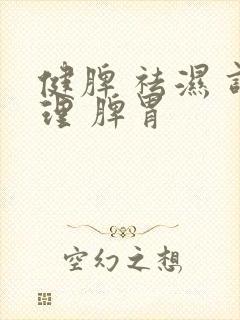 健脾 祛濕 調
理 脾胃
空幻之想